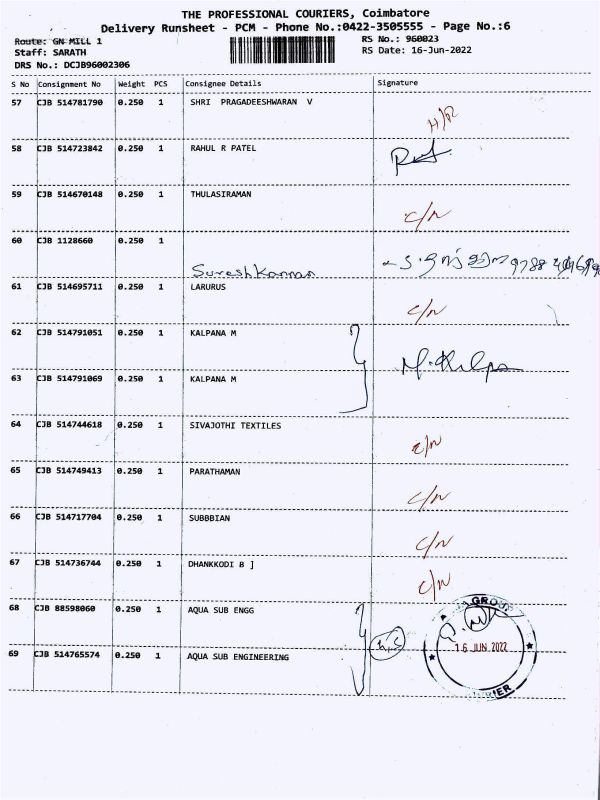 THE PROFESSIONAL COURIERS, Coimbatore
Delivery Runsheet - PCM - Phone No.:0422-3505555 - Page No.:6
Route: GN MILL 1
RS No.: 960023
Staff: SARATH
RS Date: 16-Jun-2022
DRS No.: DCJB96002306
S No Consignment No Weight PCS Consignee Details Signature
57 CJB 514781790 0.250 1 SHRI PRAGADEESHWARAN V
58 CJB 514723842 0.250 1 RAHUL R PATEL
59 CJB 514670148 0.250 1 THULASIRAMAN C/N
60 CJB 1128660 0.250 1
Sureshkannan
61 CJB 514695711 0.250 1 LARURUS C/N
62 CJB 514791051 0.250 1 KALPANA M
M. Kalpa
63 CJB 514791069 0.250 1 KALPANA M
64 CJB 514744618 0.250 1 SIVAJOTHI TEXTILES C/N
65 CJB 514749413 0.250 1 PARATHAMAN C/N
66 CJB 514717704 0.250 1 SUBBBIAN C/N
67 CJB 514736744 0.250 1 DHANKKODI B J C/N
68 CJB 88598060 0.250 1 AQUA SUB ENGG
GROUP
16 JUN 2022
69 CJB 514765574 0.250 1 AQUA SUB ENGINEERING